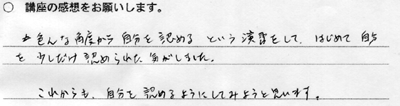 ○ 講座の感想をお願いします。
色んな角度から自分を認める という演習をして、はじめて自分
を少しだけ認められた気がしました。
これからも、自分を認めるようにしてみようと思います。